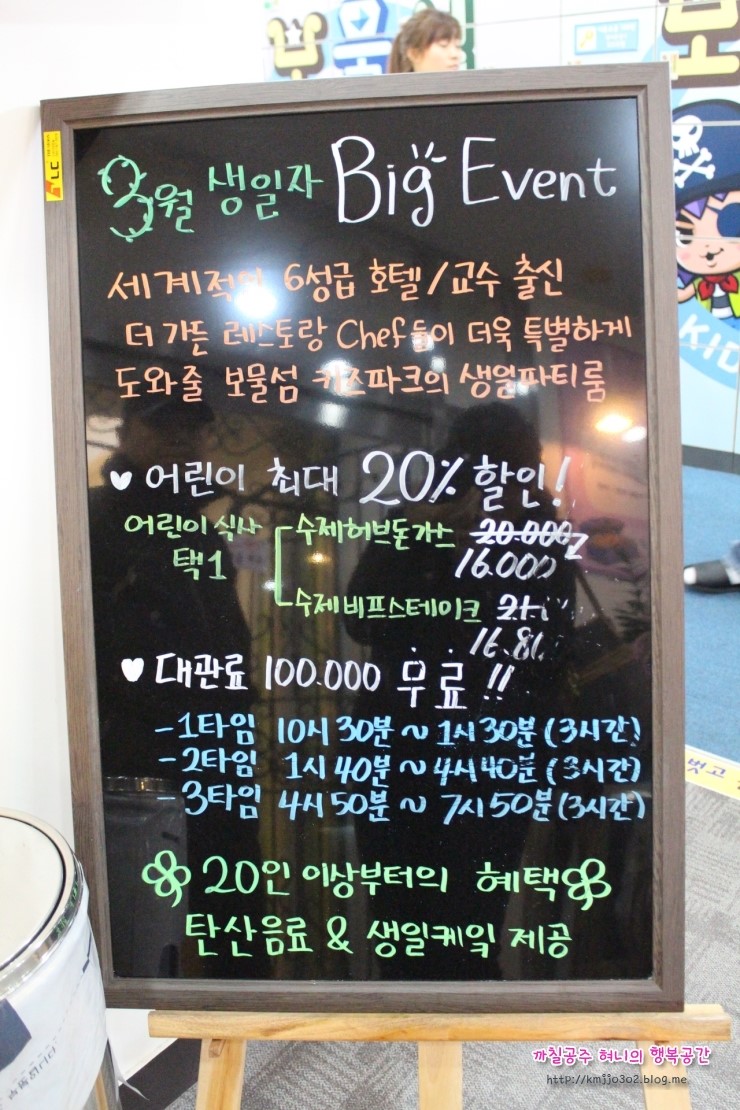 3월 생일자 Big Event
세계적인 6성급 호텔/교수 출신
더 가든 레스토랑 Chef들이 더욱 특별하게
도와줄 보물섬 키즈파크의 생일파티룸
♥ 어린이 최대 20% 할인!
어린이 식사 택1
수제허브돈가스 20.000
16.000
수제비프스테이크
♥ 대관료 100.000 무료!!
-1타임 10시 30분 ~ 1시 30분 (3시간)
-2타임 1시 40분 ~ 4시 40분 (3시간)
-3타임 4시 50분 ~ 7시 50분 (3시간)
20인 이상부터의 혜택
탄산음료 & 생일케잌 제공
KID
벗고
까칠공주 혀니의 행복공간
http://kmjjo3o2.blog.me